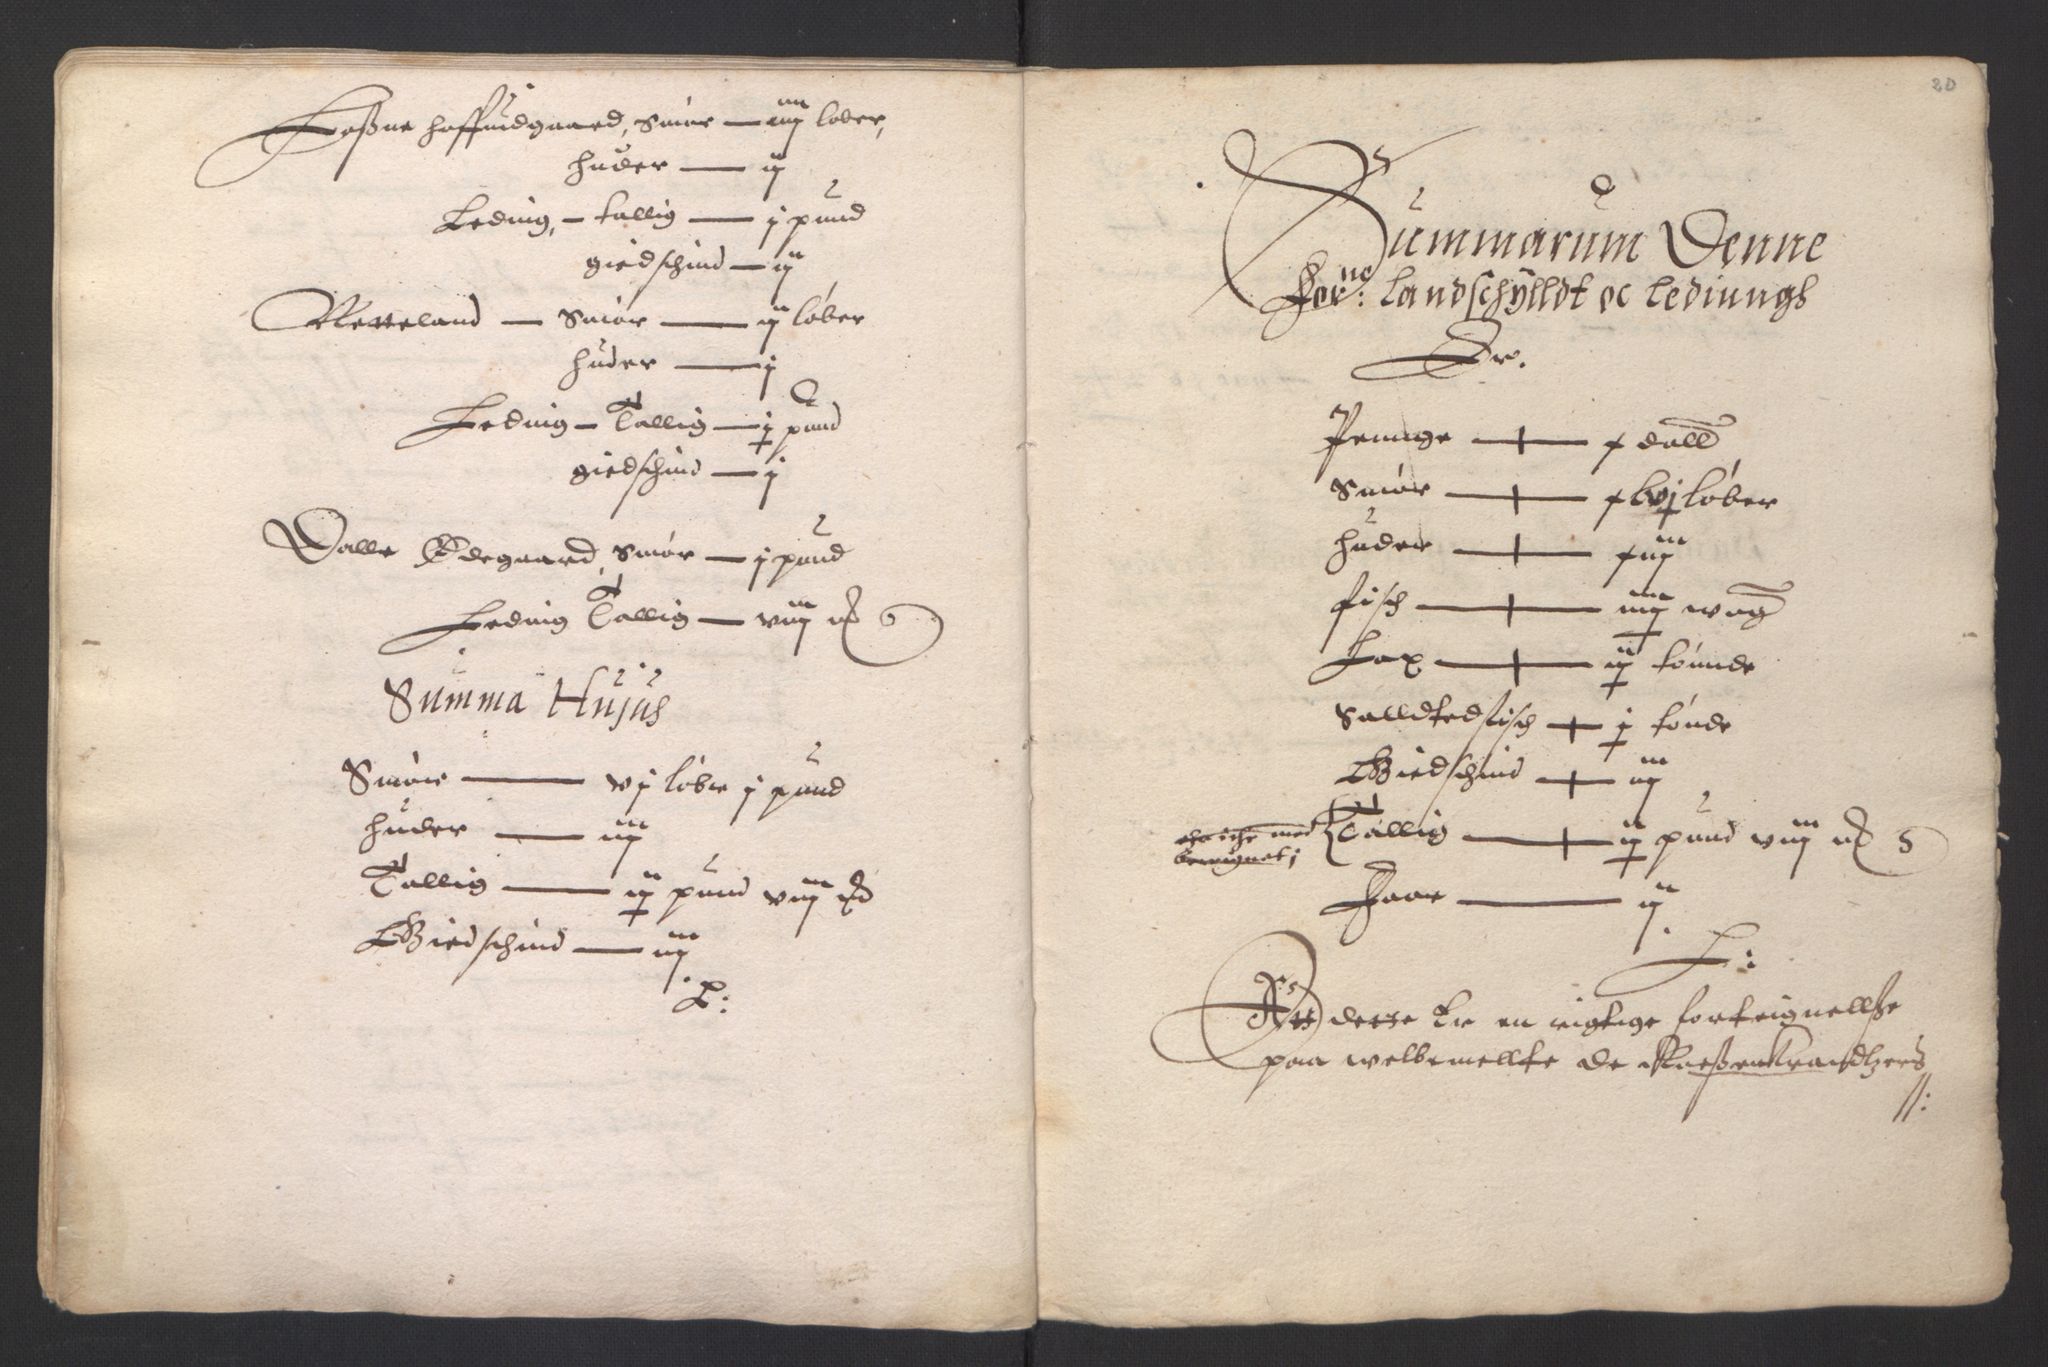 Loßne hoffuidgaard, Smör — iiij lober,
huder — ij
Leding, – tallig — j pund
giedschind — ij
Retteland — Smör — ij lober
huder — j
Leding – Tallig — j pund
giedschind — j
Dalle Ødegaard, Smör — j pund
Leding Tallig — viij
Summa Hujus
Smör — vj lober j pund
huder — iij
Tallig — ij pund viij
Giedschind — iij
20
Summarum Denne
For:ne landschylldt oc lediungs
Er.
Penninge — x dall
Smör — xlvj lober
huder — xiij
fisch — iiij wog
Lax — ij tönnde
Salldtedfisch — j tönde
Giedschind — iij
Tallig — ij pund viij
Faar — ij
Att dette Er en rigtige forteignellße
paa welbemellte